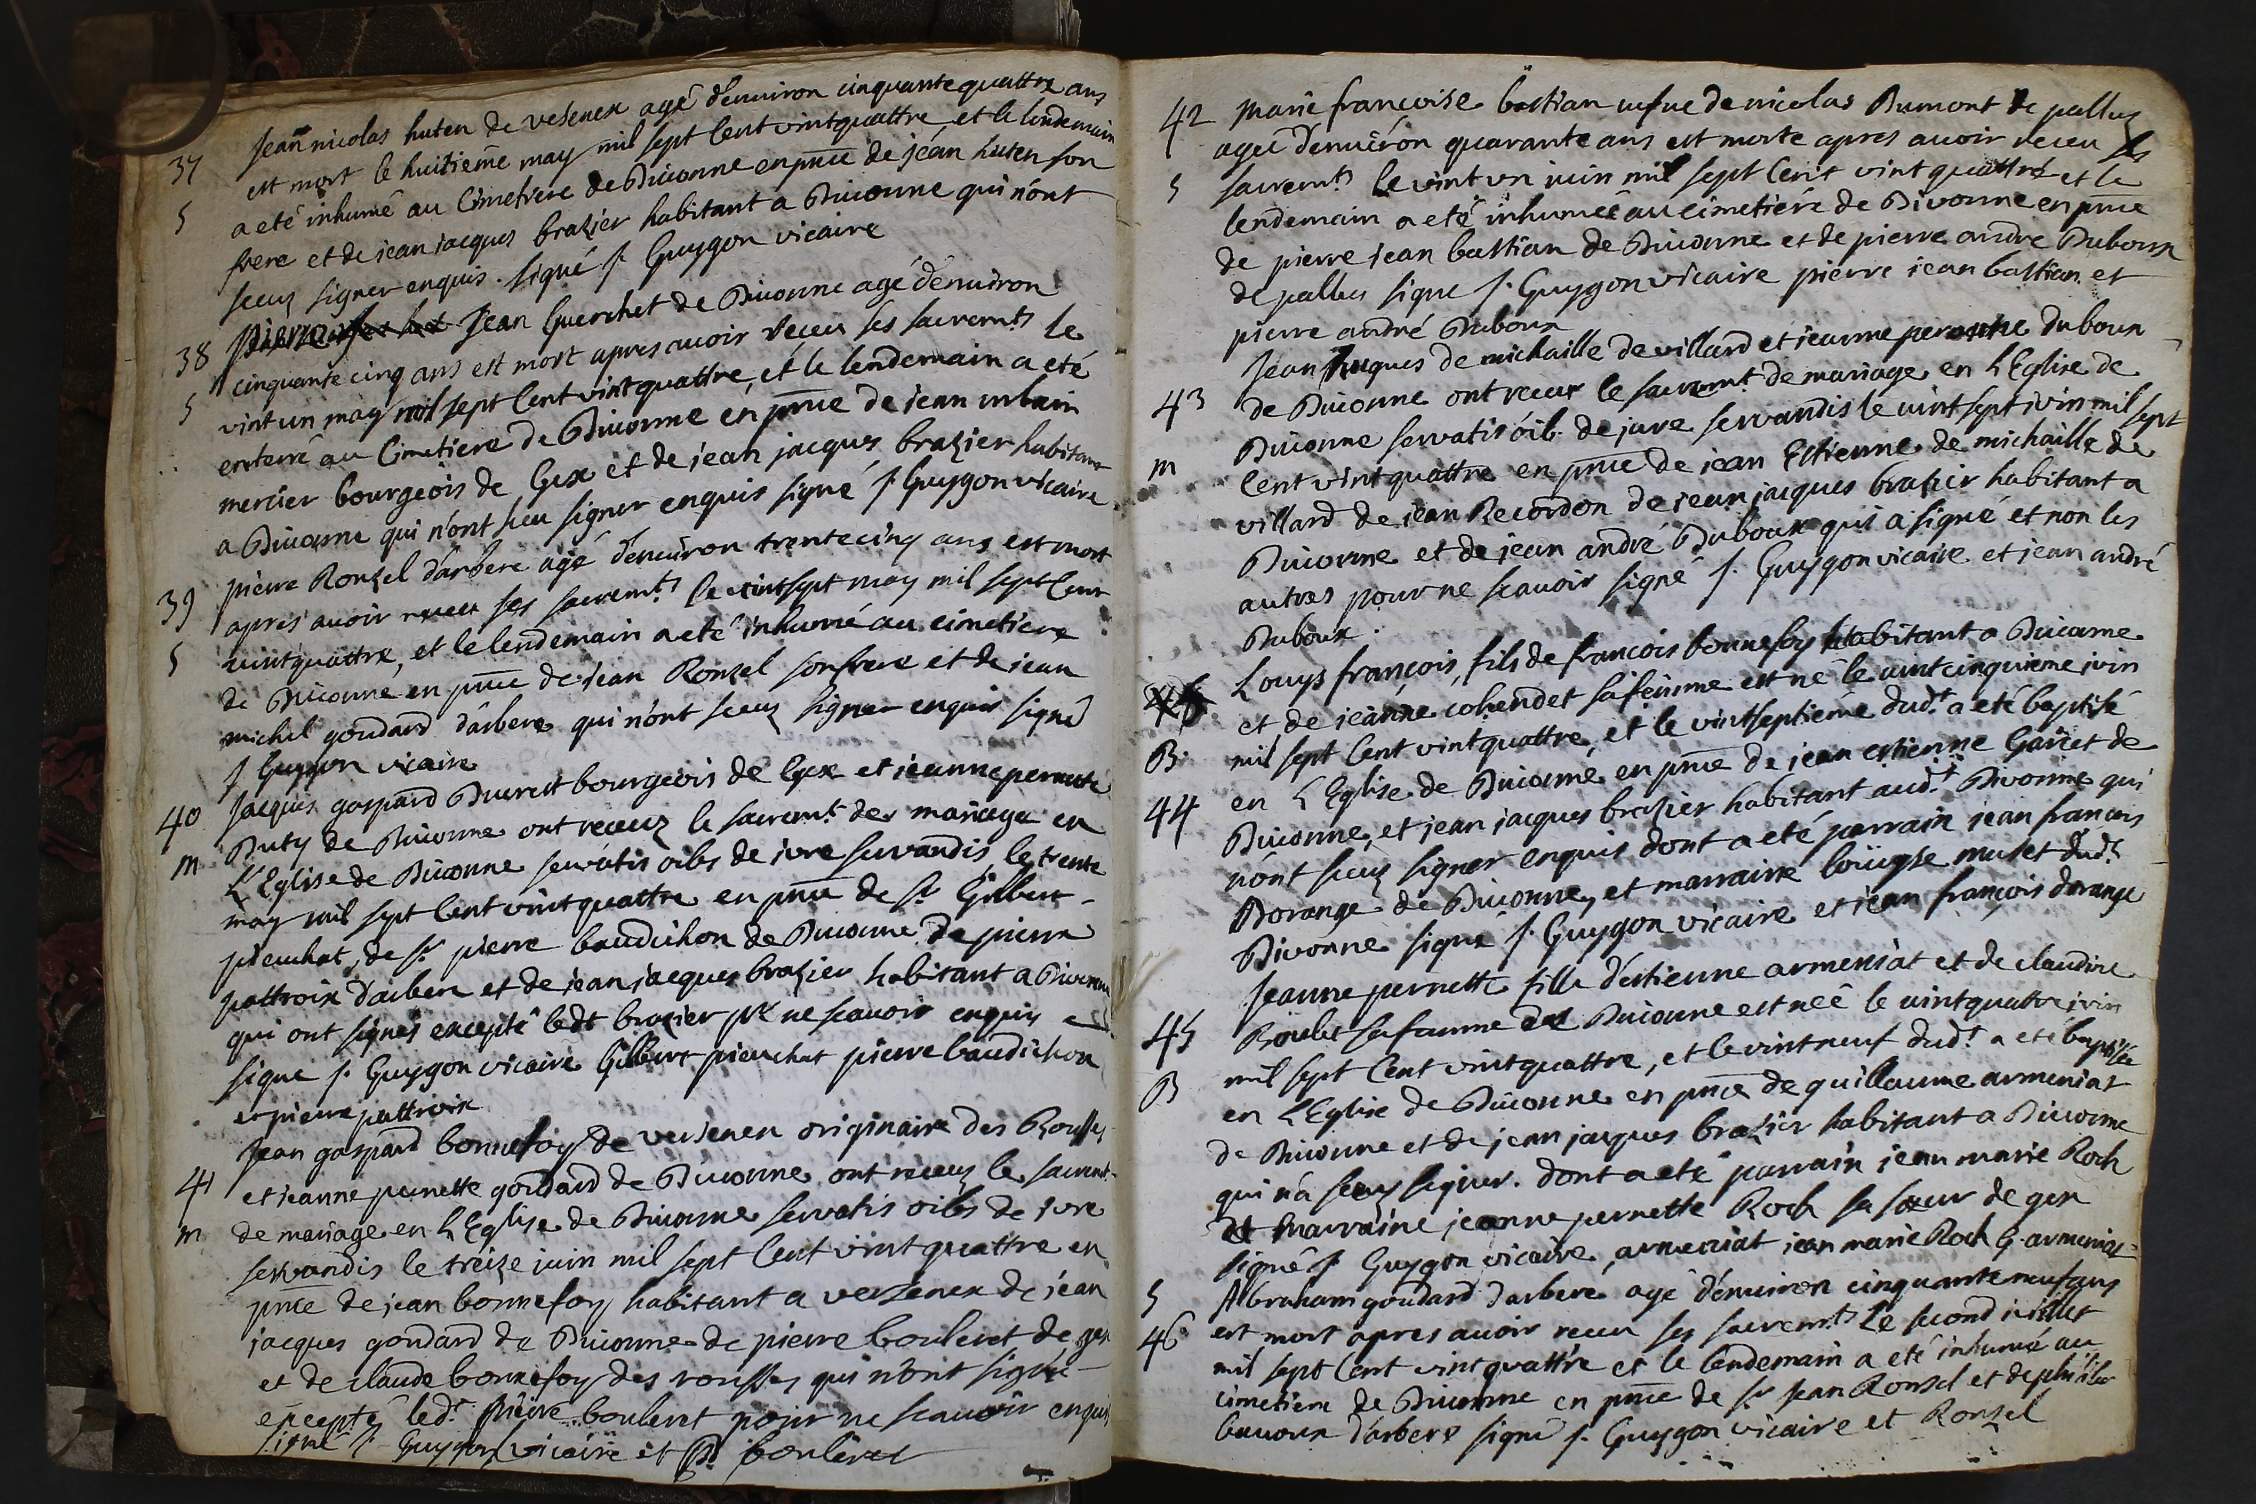 Jean nicolas huten de vesenex agé d'enuiron cinquante quattre ans
37 est mort le huitieme may mil sept Cent vintquattre et le lendemain
S a eté inhumé au Cimetiere de Diuonne en pnce de jean huten son
frere et de jean jacques brazier habitant a Diuonne qui n'ont
sceuz signer enquis. signé f. Guygon vicaire
38 Jean Guerchet de Diuonne agé d'enuiron
cinquante cinq ans est mort apres auoir receu ses sacremts le
S vint un may mil sept Cent vintquattre, et le lendemain a eté
enterré au Cimetiere de Diuonne en pnce de jean urbain
mercier bourgeois de Gex et de jean jacques brazier habitant
a Diuonne qui n'ont sceu signer enquis signé f. Guygon vicaire
39 pierre Ronzel d'arbere agé d'enuiron trente cinq ans est mort
apres auoir receu ses sacremts le vintsept may mil sept Cent
S vintquattre, et le lendemain a eté inhumé au cimetiere
de Diuonne en pnce de jean Ronzel son frere et de jean
michel goudard d'arbere qui n'ont sceuz signer enquis signé
f Guygon vicaire
40 Jacques gaspard Duerest bourgeois de Gex et jeanne pernette
Duty de Diuonne ont receuz le sacremt de mariage en
m L'Eglise de Diuonne servatis oibs de jure servandis le trente
may mil sept Cent vintquattre en pnce de sr Gilbert
pieuchat, de sr pierre baudichon de Diuonne de pierre
pattroix d'arbere et de jean jacques brazier habitant a Diuonne
qui ont signés excepté ledt brazier pr ne scauoir enquis
signe f. Guygon vicaire Gilbert pieuchat pierre baudichon
et pierre pattroix
Jean gaspard bonnefoy de versenex originaire des Rousses
41 et jeanne pernette goudard de Diuonne ont receuz le sacremt
m de mariage en L'Eglise de Diuonne servatis oibs de jure
servandis le treize juin mil sept Cent vint quattre en
pnce de jean bonnefoy habitant a versenex de jean
jacques goudard de Diuonne de pierre bouleret de gex
et de claude bonnefoy des rousses qui n'ont signé
excepté ledt pierre bouleret pour ne scauoir enquis
signé f. Guygon vicaire et P. bouleret
42 Marie francoise bastian uefue de nicolas Dumont de pallus
agée d'enuiron quarante ans est morte apres auoir receu ses
S sacremts le vint un iuin mil sept Cent vint quattre et le
lendemain a eté inhumée au cimetiere de Divonne en pnce
de pierre jean bastian de Diuonne et de pierre andre Duboux
de pallus signe f. Guygon vicaire pierre jean bastian et
pierre andré Duboux
Jean hugues de michaille de villard et jeanne peronne duboux
43 de Diuonne ont receux le sacremt de mariage en L'Eglise de
Diuonne servatis oib. de jure servandis le uintsept ivin mil sept
m Cent vint quattre en pnce de jean Estienne de michaille de
villard de jean Recordon de jean jacques brazier habitant a
Diuonne et de jean andré Duboux qui a signé et non les
autres pour ne scauoir signé f. Guygon vicaire et jean andré
Duboux.
Louys françois, fils de françois bonnefoy habitant a Diuonne
et de jeanne cohendet sa femme est né le uint cinquieme ivin
B mil sept Cent vintquattre, et le vintseptiéme dudt a eté baptisé
en L'Eglise de Diuonne en pnce de jean estienne Garet de
44 Diuonne, et jean jacques brazier habitant audt Divonne qui
n'ont sceuz signer enquis dont a eté parrain jean francois
Dorange de Diuonne, et marraine loüyse muset dudt
Divonne signé f. Guygon vicaire et jean françois dorange
Jeanne pernette fille d'estienne armeniat et de claudine
45 Roulet sa famme de Diuonne est née le uintquattre ivin
mil sept Cent vintquattre, et le vintneuf dudt a eté baptisée
B en L'Eglise de Diuonne en pnce de guillaume armeniat
de Diuonne et de jean jacques brazier habitant a Diuonne
qui n'a sceuz signer. dont a eté parrain jean marie Roch
et marraine jeanne pernette Roch sa soeur de gex
signé f. Guygon vicaire, armeniat jean marie Roch G. armeniat
S Abraham goudard d'arbere agé d'enuiron cinquante neuf ans
46 est mort apres auoir receu ses sacremts Le second iuillet
mil sept Cent vintquattre et le lendemain a eté inhumé au
cimetiere de Diuonne en pnce de sr Jean Ronzel et de philiber
bauoux d'arbere signé f. Guygon vicaire et Ronzel